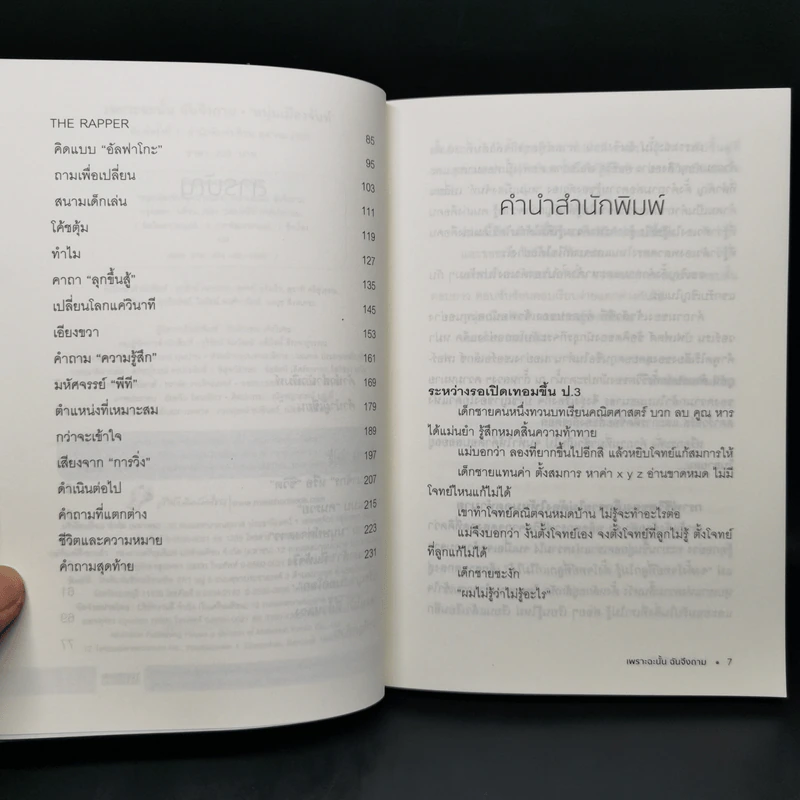 THE RAPPER 85
คิดแบบ “อัลฟาโกะ” 95
ถามเพื่อเปลี่ยน 103
สนามเด็กเล่น 111
โค้ชตุ้ม 119
ทำไม 127
คาถา “ลุกขึ้นสู้” 135
เปลี่ยนโลกแค่วินาที 145
เอียงขวา 153
คำถาม “ความรู้สึก” 161
มหัศจรรย์ “พีที” 169
ตำแหน่งที่เหมาะสม 179
กว่าจะเข้าใจ 189
เสียงจาก “การวิ่ง” 197
ดำเนินต่อไป 207
คำถามที่แตกต่าง 215
ชีวิตและความหมาย 223
คำถามสุดท้าย 231
คำนำสำนักพิมพ์
ระหว่างรอเปิดเทอมขึ้น ป.3
เด็กชายคนหนึ่งทวนบทเรียนคณิตศาสตร์ บวก ลบ คูณ หาร
ได้แม่นยำ รู้สึกหมดสิ้นความท้าทาย
แม่บอกว่า ลองที่ยากขึ้นไปอีกสิ แล้วหยิบโจทย์แก้สมการให้
เด็กชายแทนค่า ตั้งสมการ หาค่า x y z อ่านขาดหมด ไม่มี
โจทย์ไหนแก้ไม่ได้
เขาทำโจทย์คณิตจนหมดบ้าน ไม่รู้จะทำอะไรต่อ
แม่จึงบอกว่า งั้นตั้งโจทย์เอง จงตั้งโจทย์ที่ลูกไม่รู้ ตั้งโจทย์
ที่ลูกแก้ไม่ได้
เด็กชายชะงัก
“ผมไม่รู้ว่าไม่รู้อะไร”
เพราะฉะนั้น ฉันจึงถาม • 7